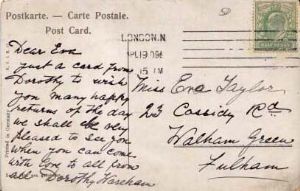 Postkarte. — Carte Postale.
Post Card.
LONDON.N
Dear Eva
just a card from
Dorothy to wish
you many happy
returns of the day
we shall be very
pleased to see you
when you can come
with love to all from
all Dorothy Wareham
Miss Eva Taylor
23 Cassidy Rd
Walham Green
Fulham